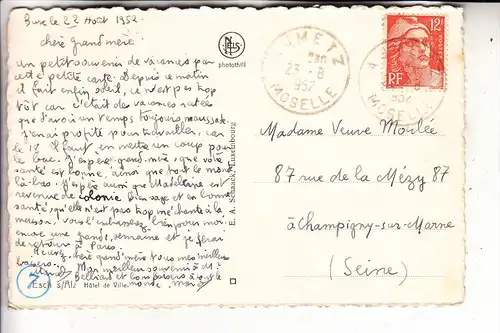 le 22 Août 1952
chère grand mère
un petit souvenir de vacances par
cette petite carte. Depuis ce matin
il fait enfin soleil, ce n'est pas trop
tôt car c'était des vacances ratées
que d'avoir un temps toujours
J'en ai profité pour travailler, car
le 12 il faut en mettre un coup pour
le bac. J'espère grand mère, que votre
santé est bonne, ainsi que tout le monde
là-bas. J'espère aussi que Madeleine est
revenue de colonie bien sage et en bonne
santé, qu'elle n'est pas trop méchante à la
maison. vous l'embrasserez pour moi
encore une grande semaine et je serai
de retour à Paris.
chère grand mère tous mes meilleurs
baisers
Mes meilleurs souvenirs à
et à tout le
monde.
7
Esch s/Alz. Hôtel de Ville
E. A. Schaack, Luxembourg
NELS
photothill
METZ
23 - 8
1952
MOSELLE
12F
RF
MOSELLE
Madame Veuve Moulée
87 rue de la Mézy 87
à Champigny-sur-Marne
(Seine)